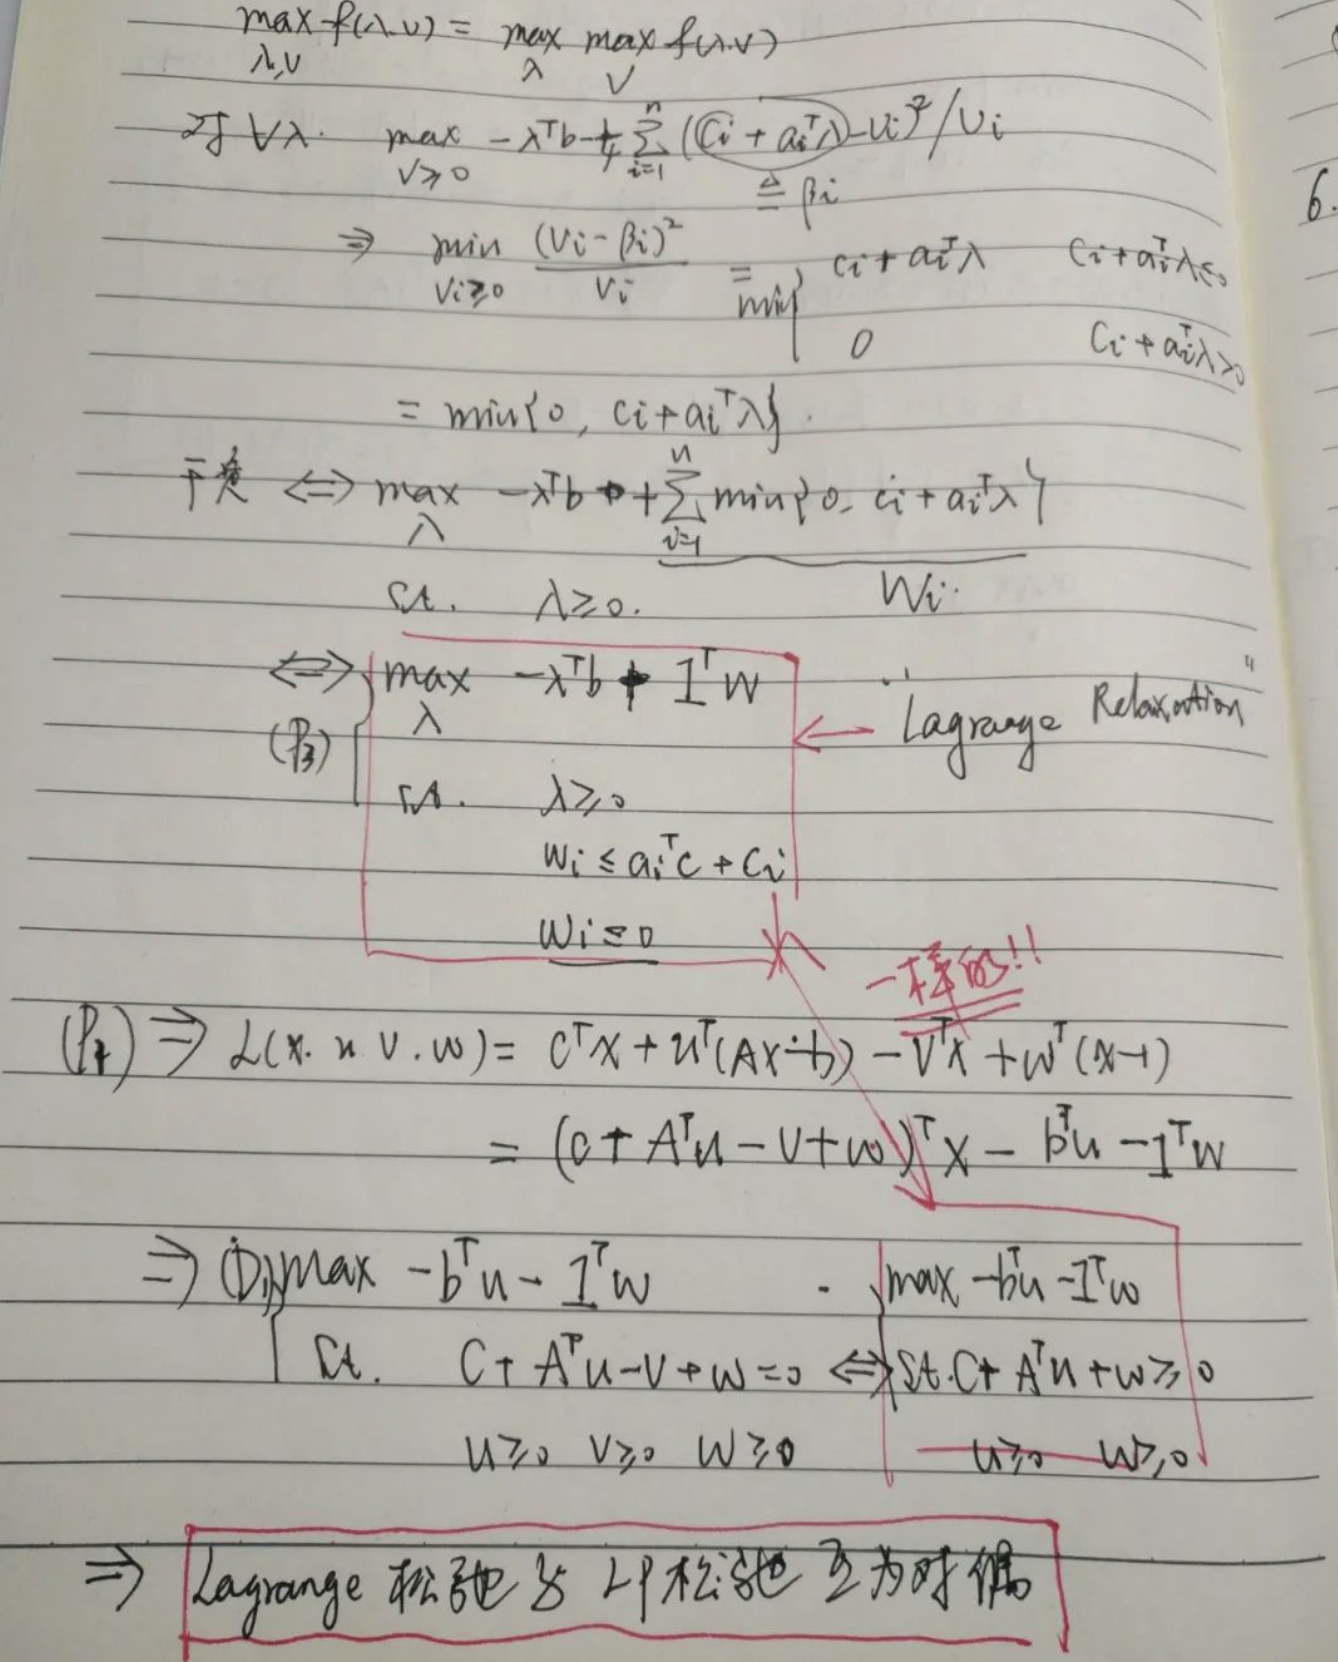 max f(λ.ν) = max max f(λ.ν)
λ,ν λ ν
对∀λ. max -λᵀb - 1/4 Σ (Ci + aiᵀλ - νi)² / νi
ν≥0 i=1 n
≜ βi
⇒ min (νi - βi)² / νi = min { Ci + aiᵀλ Ci + aiᵀλ ≤ 0
νi≥0 0 Ci + aiᵀλ ≥ 0
= min{0, Ci + aiᵀλ}.
于是 ⇔ max -λᵀb + Σ min{0, Ci + aiᵀλ}
λ i=1 n
s.t. λ≥0. Wi.
⇔ max -λᵀb + 1ᵀW
λ ← Lagrange Relaxation"
(P3)
s.t. λ≥0
Wi ≤ aiᵀC + Ci
Wi ≤ 0
一样的!!
⇒ L(x. u. v. w) = Cᵀx + uᵀ(Ax-b) - vᵀx + wᵀ(x-1)
= (C + Aᵀu - v + w)ᵀx - bᵀu - 1ᵀw
⇒ (D1) max -bᵀu - 1ᵀw max -bᵀu - 1ᵀw
s.t. C + Aᵀu - v + w = 0 ⇔ s.t. C + Aᵀu + w ≥ 0
u≥0 v≥0 w≥0 u≥0 w≥0
⇒ Lagrange 松弛与 LP松弛 互为对偶
6.